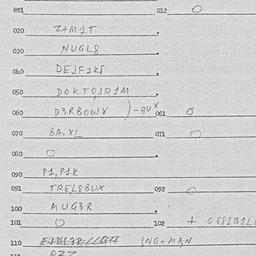 011 012 O
020 Z+M1T
030 NUGL8
040 DEJFIK8
050 DOKTO1R1M
060 D3RBOWX )-BUX 061 O
070 BA,XL 071 O
080 O
090 P1,P1K
091 TREL8BUX 092 O
100 MUG3R
101 O 102
110 ING+MAN